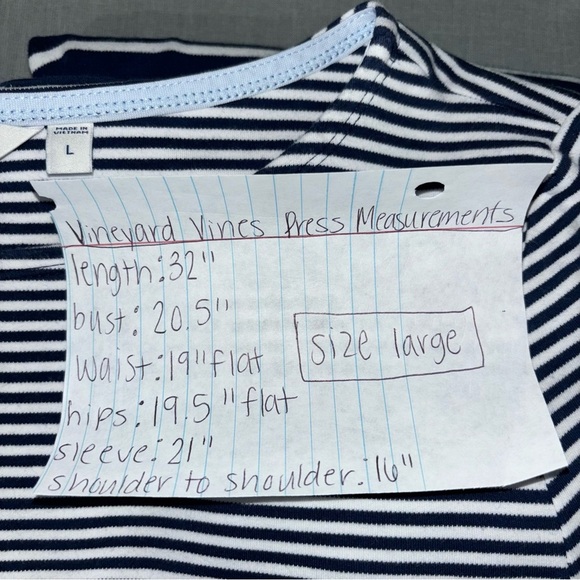 MADE IN
VIETNAM
L
Vineyard Vines Dress Measurements
length: 32"
bust: 20.5"
waist: 19" flat
size large
hips: 19.5" flat
sleeve: 21"
shoulder to shoulder: 16"